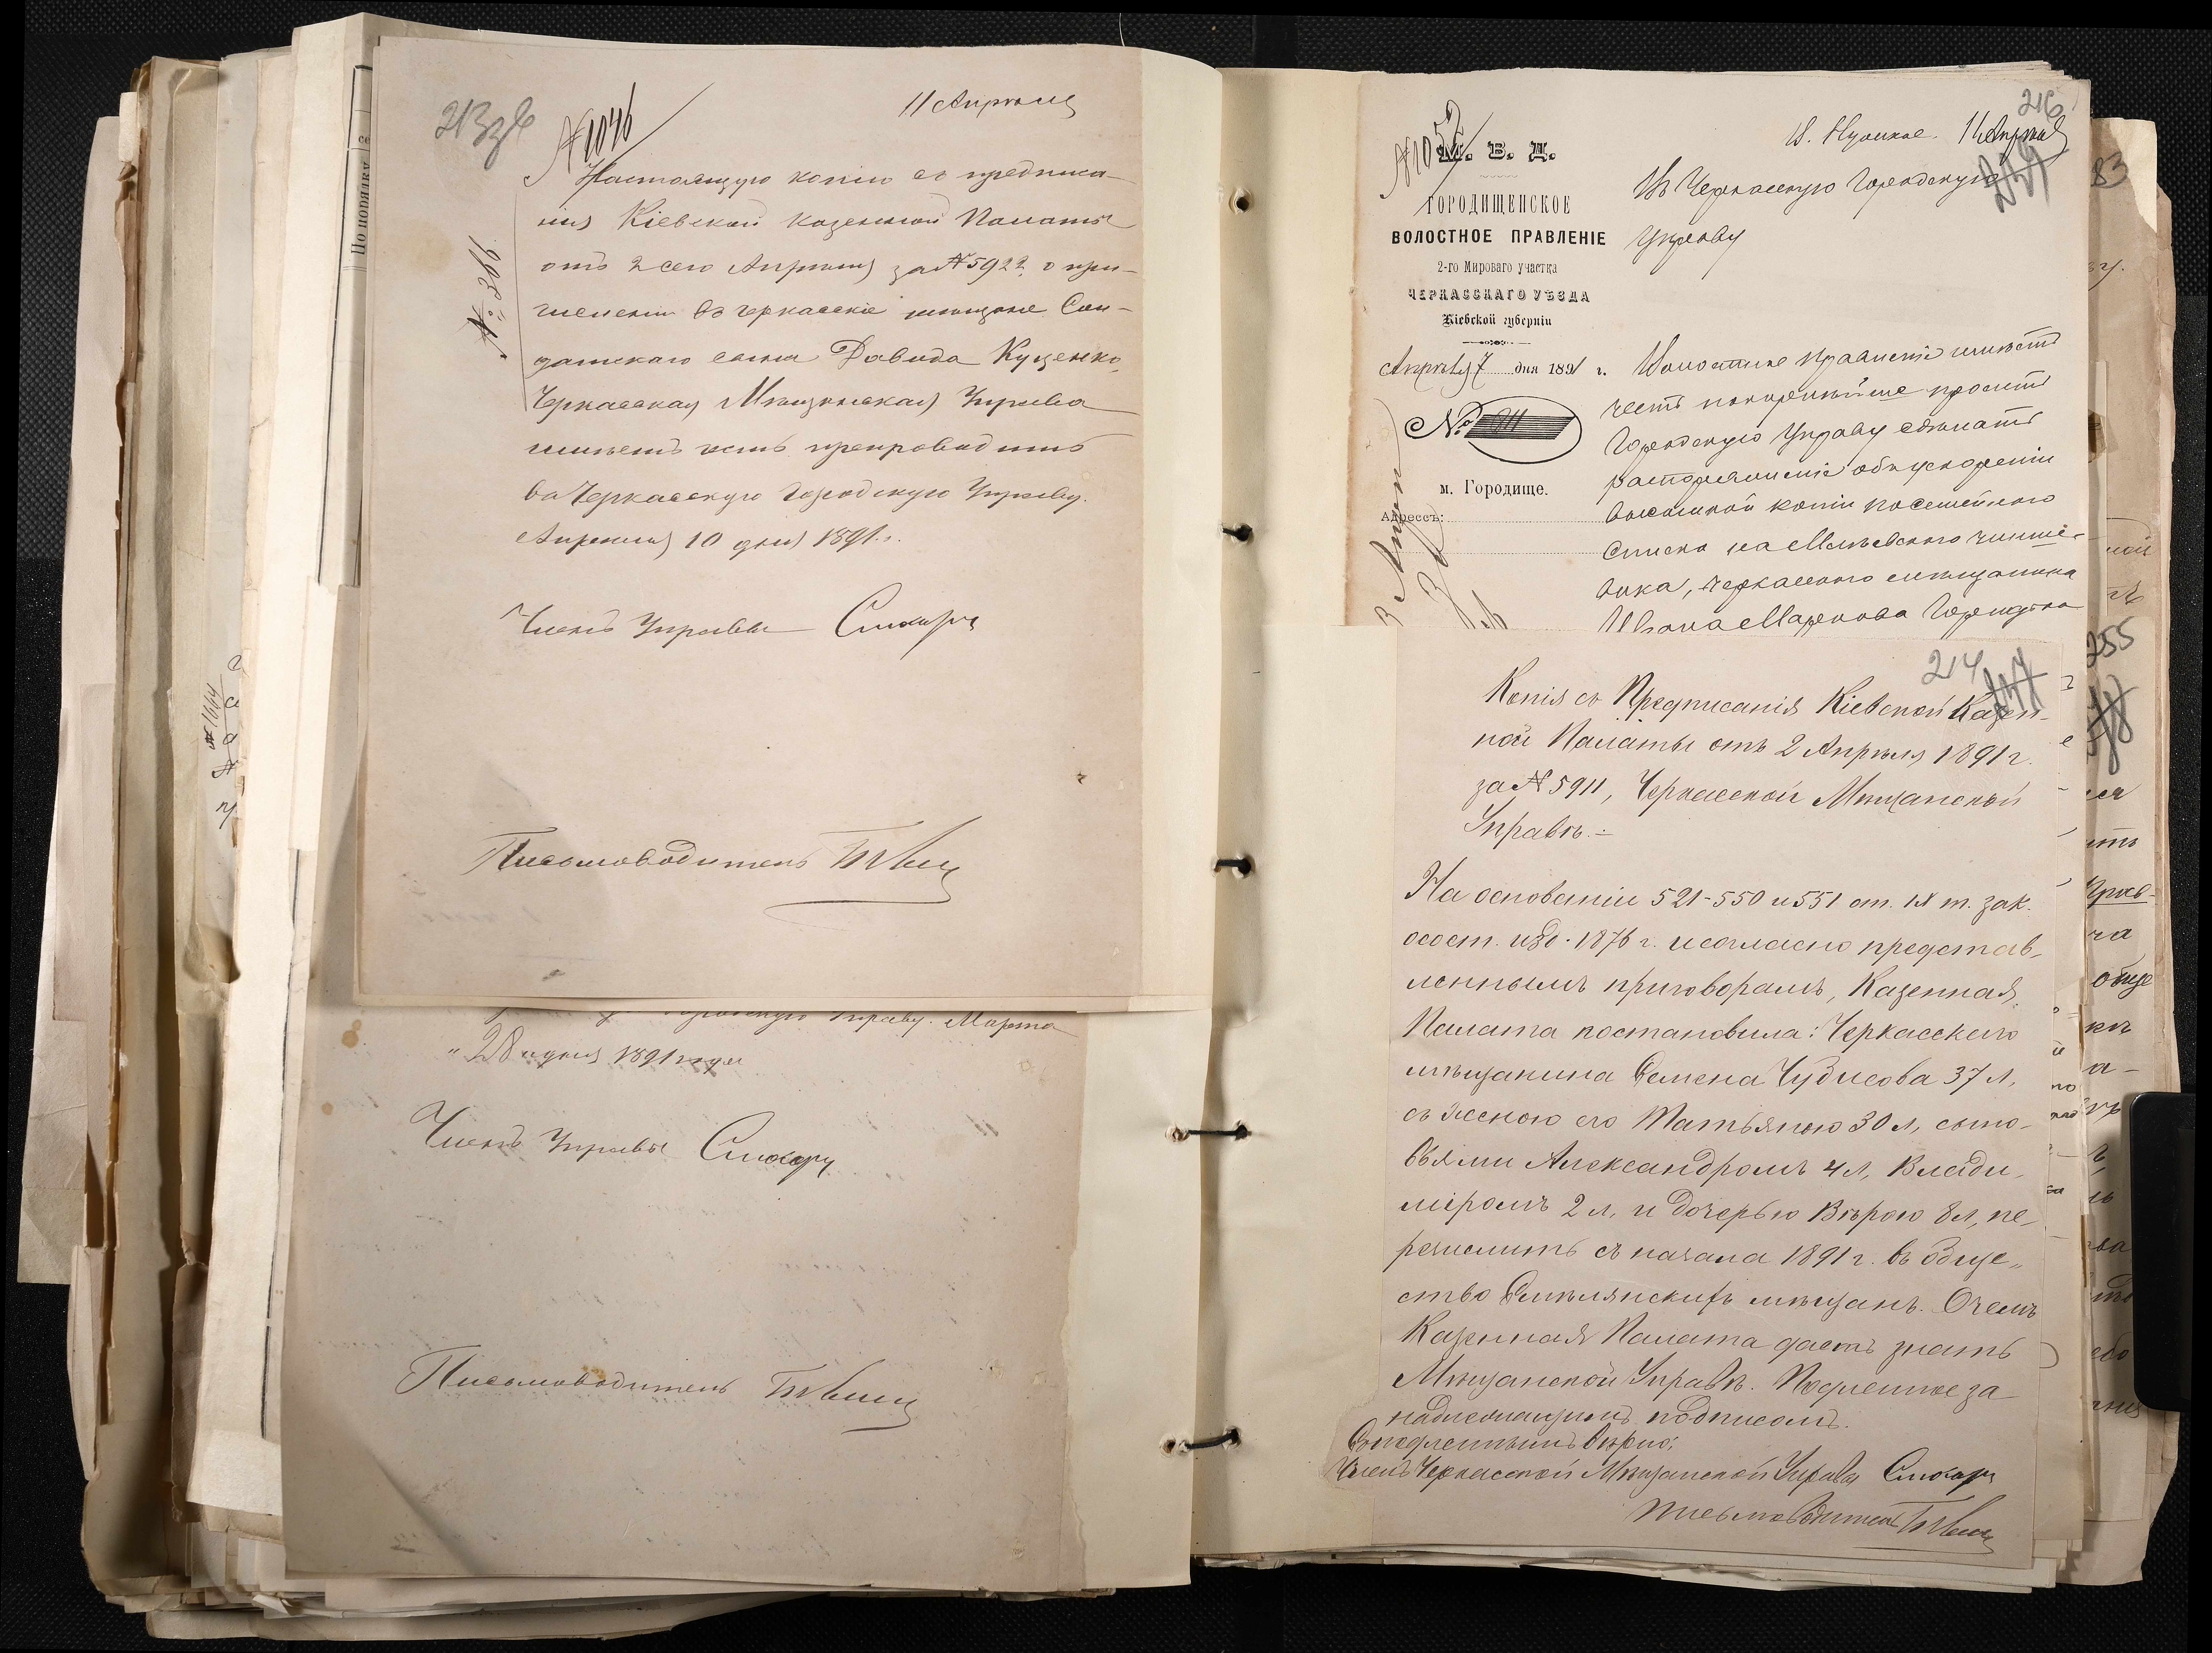 213 зв
11 Апрѣля
№1046
Настоящую копію съ предписа-
нія Кіевской Казенной Палаты
отъ 2 сего Апрѣля за №5922 о при-
численіи въ черкасскіе мѣщане Сол-
датскаго сына Давида Куценко,
Черкасская Мѣщанская Управа
имѣетъ честь препроводить
въ Черкасскую Городскую Управу.
Апрѣля 10 дня 1891 г.
№ 386
Членъ Управы
Письмоводитель
Управу. Марта
"28 дня 1891 года
Членъ Управы
Письмоводитель
По порядку
№ 1664
216
11 Апрѣля
№105
М. В. Д.
ГОРОДИЩЕНСКОЕ
ВОЛОСТНОЕ ПРАВЛЕНІЕ
2-го Мироваго участка
ЧЕРКАССКАГО УѢЗДА
Кіевской губерніи
Апрѣля 7 дня 1891 г.
№
м. Городище.
Адрессъ:
Въ Черкасскую Городскую
Управу
Волостное Правленіе имѣетъ
честь покорнѣйше просить
Городскую Управу сдѣлать
распоряженіе объ ускореніи
высылкой копіи посемейного
списка на Мліевского чинше-
вика, черкасского мѣщанина
Ивана Маркова
214
Копія съ Предписанія Кіевской Казен-
ной Палаты отъ 2 Апрѣля 1891 г.
за №5911, Черкасской Мѣщанской
Управѣ.-
На основаніи 521-550 и 551 ст. IX т. зак.
о сост. изд. 1876 г. и согласно представ-
леннымъ приговорамъ, Казенная
Палата постановила: Черкасскаго
мѣщанина Семена Чудисова 37 л,
съ женою его Татьяною 30 л, сыно-
вьями Александромъ 4 л, Влади-
міромъ 2 л, и дочерью Вѣрою 8 л, пе-
речислить съ начала 1891 г. въ обще-
ство Смѣлянскихъ мѣщанъ. О чемъ
Казенная Палата даетъ знать
Мѣщанской Управѣ. Подленное за
надлежащимъ подписомъ.
Съ подленнымъ вѣрно:
Членъ Черкасской Мѣщанской Управы
Письмоводитель
83
255